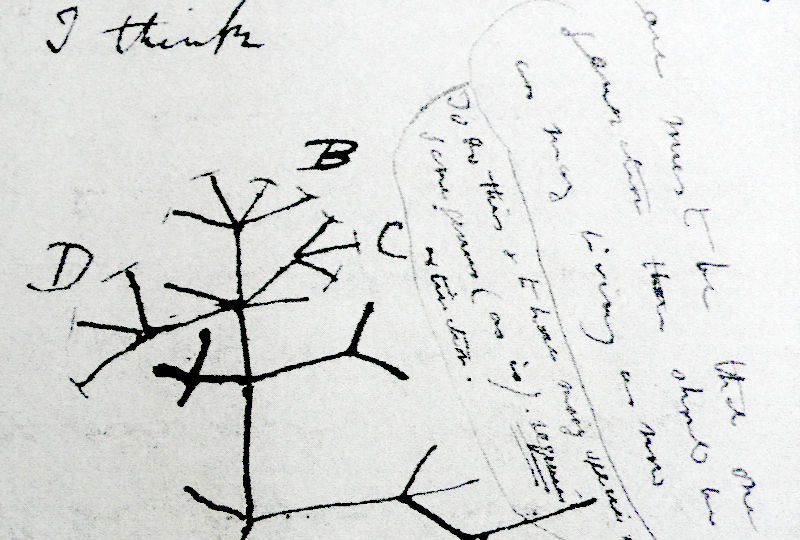 I think
B
C
D
one must be that one
generation then should be
as many living as now
To do this & to have many species in
same genus (as is). requires
extinction.